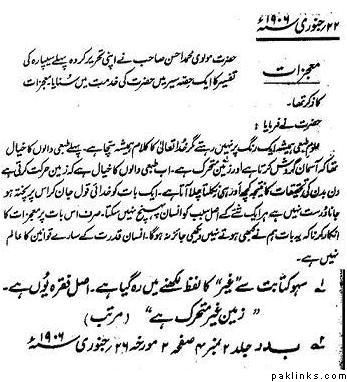 ۲۲؍ جنوری ۱۹۰۶ء
معجزات
حضرت مولوی محمد احسن صاحب نے اپنی تحریر کردہ پہلے سیپارہ کی
تفسیر کا ایک حصہ سیر میں حضرت کی خدمت میں سنایا۔ معجزات
کا ذکر تھا۔
حضرت نے فرمایا:
علوم طبعی ہمیشہ ایک رنگ پر نہیں رہتے مگر خدا تعالیٰ کا کلام ہمیشہ سچا ہے۔ پہلے طبعی والوں کا خیال
تھا کہ آسمان گردش کرتا ہے اور زمین متحرک ہے۔ اب طبعی والوں کا خیال ہے کہ زمین حرکت کرتی ہے
دن بدن کی تحقیقات کا نتیجہ کچھ اور ہی نکلتا چلا آتا ہے۔ ایک بات کو خدائی قول جان کر اس پر پختہ ہو
جانا درست نہیں ہے ہر ایک شئے کے اصل سبب کو انسان پہنچ نہیں سکتا۔ صرف اس بات پر معجزات کا
انکار کرنا کہ یہ بات ہم نے کبھی ہوتے نہیں دیکھی جائز نہ ہوگا۔ انسان قدرت کے سارے قوانین کا عالم
نہیں ہے۔
لے سہو کتابت سے "غیر" کا لفظ لکھنے میں رہ گیا ہے۔ اصل فقرہ یوں ہے۔
"زمین غیر متحرک ہے" (مرتب)
لے بدر جلد ۲ نمبر ۴ صفحہ ۲ مورخہ ۲۶؍ جنوری ۱۹۰۶ء
paklinks.com